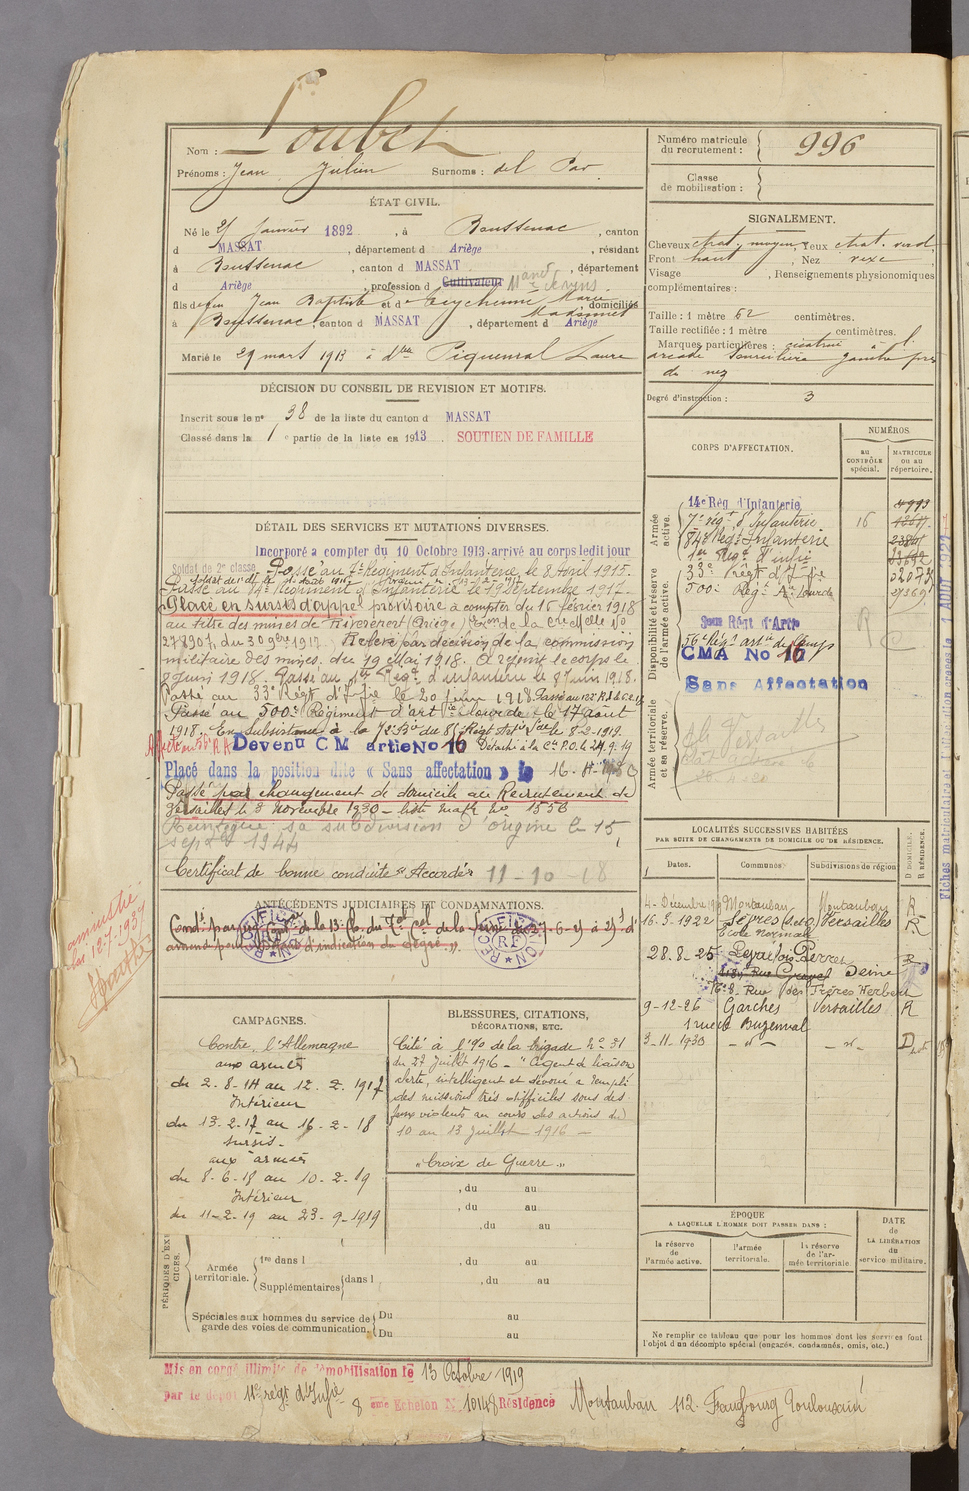 Nom : Loubet
Prénoms : Jean Julien Surnoms : del Pav
Numéro matricule du recrutement : 996
Classe de mobilisation :
ÉTAT CIVIL.
Né le 21 Janvier 1892, à Boussenac, canton
d MASSAT, département d Ariège, résidant
à Boussenac, canton d MASSAT, département
d Ariège, profession d Cultivateur Mand de vins
fils de feu Jean Baptiste et d Teychenné Marie Madeleine domiciliés
à Boussenac, canton d MASSAT, département d Ariège
Marié le 29 mars 1913 à dlle Piquemal Laure
SIGNALEMENT.
Cheveux chat. moyen, yeux chat. verd.
Front haut, Nez vexe
Visage , Renseignements physionomiques
complémentaires :
Taille : 1 mètre 62 centimètres.
Taille rectifiée : 1 mètre centimètres.
Marques particulières : cicatrice à l'
arcade sourcilière gauche près
du nez
Degré d'instruction : 3
DÉCISION DU CONSEIL DE REVISION ET MOTIFS.
Inscrit sous le n° 38 de la liste du canton d MASSAT
Classé dans la 1e partie de la liste en 1913. SOUTIEN DE FAMILLE
DÉTAIL DES SERVICES ET MUTATIONS DIVERSES.
Incorporé a compter du 10 Octobre 1913 arrivé au corps ledit jour
Soldat de 2e classe Passé au 7e Régiment d'Infanterie le 8 Avril 1915.
Passé au 84e Régiment d'Infanterie le 19 Septembre 1917.
Placé en sursis d'appel provisoire à compter du 16 février 1918
au titre des mines de (Ariège)
278907 du 30 9bre 1917. Relevé par décision de la commission
militaire des mines du 19 Mai 1918. A rejoint le corps le
8 Juin 1918. Passé au 1er Régt d'infanterie le 8 Juin 1918.
Passé au 33e Régt d'Infie le 20 juin 1918
Passé au 500e Régiment d'artie lourde le 17 août
1918. En Subsistance à la 72e Bie du 81 Régt Artie le 8-2-1919.
Affecté au 56e R A Devenu C M artie No 16 Détaché à la Cie P.O. le 24.9.19
Placé dans la position dite « Sans affectation » le 16-4-
Passé par changement de domicile au Recrutement de
Versailles le 3 novembre 1930 – liste matle No 1556
Réintègre sa subdivision d'origine le 15
septbre 1944
Certificat de bonne conduite "Accordé" 11-10-18
CORPS D'AFFECTATION.
NUMÉROS
au CONTRÔLE spécial.
MATRICULE ou au répertoire.
Armée active.
14e Rég d'Infanterie
7e régt d'Infanterie 16
84e Régt Infanterie
1er Régt d'infie
Disponibilité et réserve de l'armée active.
33e Régt d'Infie
500e Régt An Lourde
56e Régt artie de Camp
CMA No 16
Sans Affectation
Armée territoriale et sa réserve.
ANTÉCÉDENTS JUDICIAIRES ET CONDAMNATIONS.
amnistié
loi 12-7-1937
RECTIFICATION
RF
LOCALITÉS SUCCESSIVES HABITÉES
PAR SUITE DE CHANGEMENTS DE DOMICILE OU DE RÉSIDENCE.
Dates. Communes. Subdivisions de région. D DOMICILE. R RÉSIDENCE.
4- Décembre Montauban Montauban R
16-3-1922 Sèvres (S et O) Versailles R
Ecole Normale
28-8-25 Levallois Perret R
Seine
16-8- Rue des Frères Herbert
9-12-26 Garches Versailles R
1 rue de Buzenval
3-11-1930 - d° - - d° - D
CAMPAGNES.
Contre l'Allemagne
aux armées
du 2-8-14 au 12-2-1917
Intérieur
du 13-2-17 au 16-2-18
sursis -
aux armées
du 8-6-18 au 10-2-19
Intérieur
du 11-2-19 au 23-9-1919
BLESSURES, CITATIONS,
DÉCORATIONS, ETC.
Cité à l'ordre de la brigade No 31
du 27 juillet 1916 – "Agent de liaison
alerte, intelligent et dévoué a rempli
des missions très difficiles sous des
feux violents au cours des actions du
10 au 13 juillet 1916 –
"Croix de Guerre"
, du au
, du au
, du au
PÉRIODES D'EXERCICES.
Armée territoriale.
1re dans l , du au
Supplémentaires dans l , du au
Spéciales aux hommes du service de garde des voies de communication.
Du au
Du au
ÉPOQUE
A LAQUELLE L'HOMME DOIT PASSER DANS :
la réserve de l'armée active.
l'armée territoriale.
la réserve de l'armée territoriale.
DATE de LA LIBÉRATION du service militaire.
Ne remplir ce tableau que pour les hommes dont les services font
l'objet d'un décompte spécial (engagés, condamnés, omis, etc.)
Mis en congé illimité de démobilisation le 13 Octobre 1919
par le dépôt 11e régt d'Infie 8 eme Echelon N° 10148 Résidence Montauban 112 Faubourg Toulousain